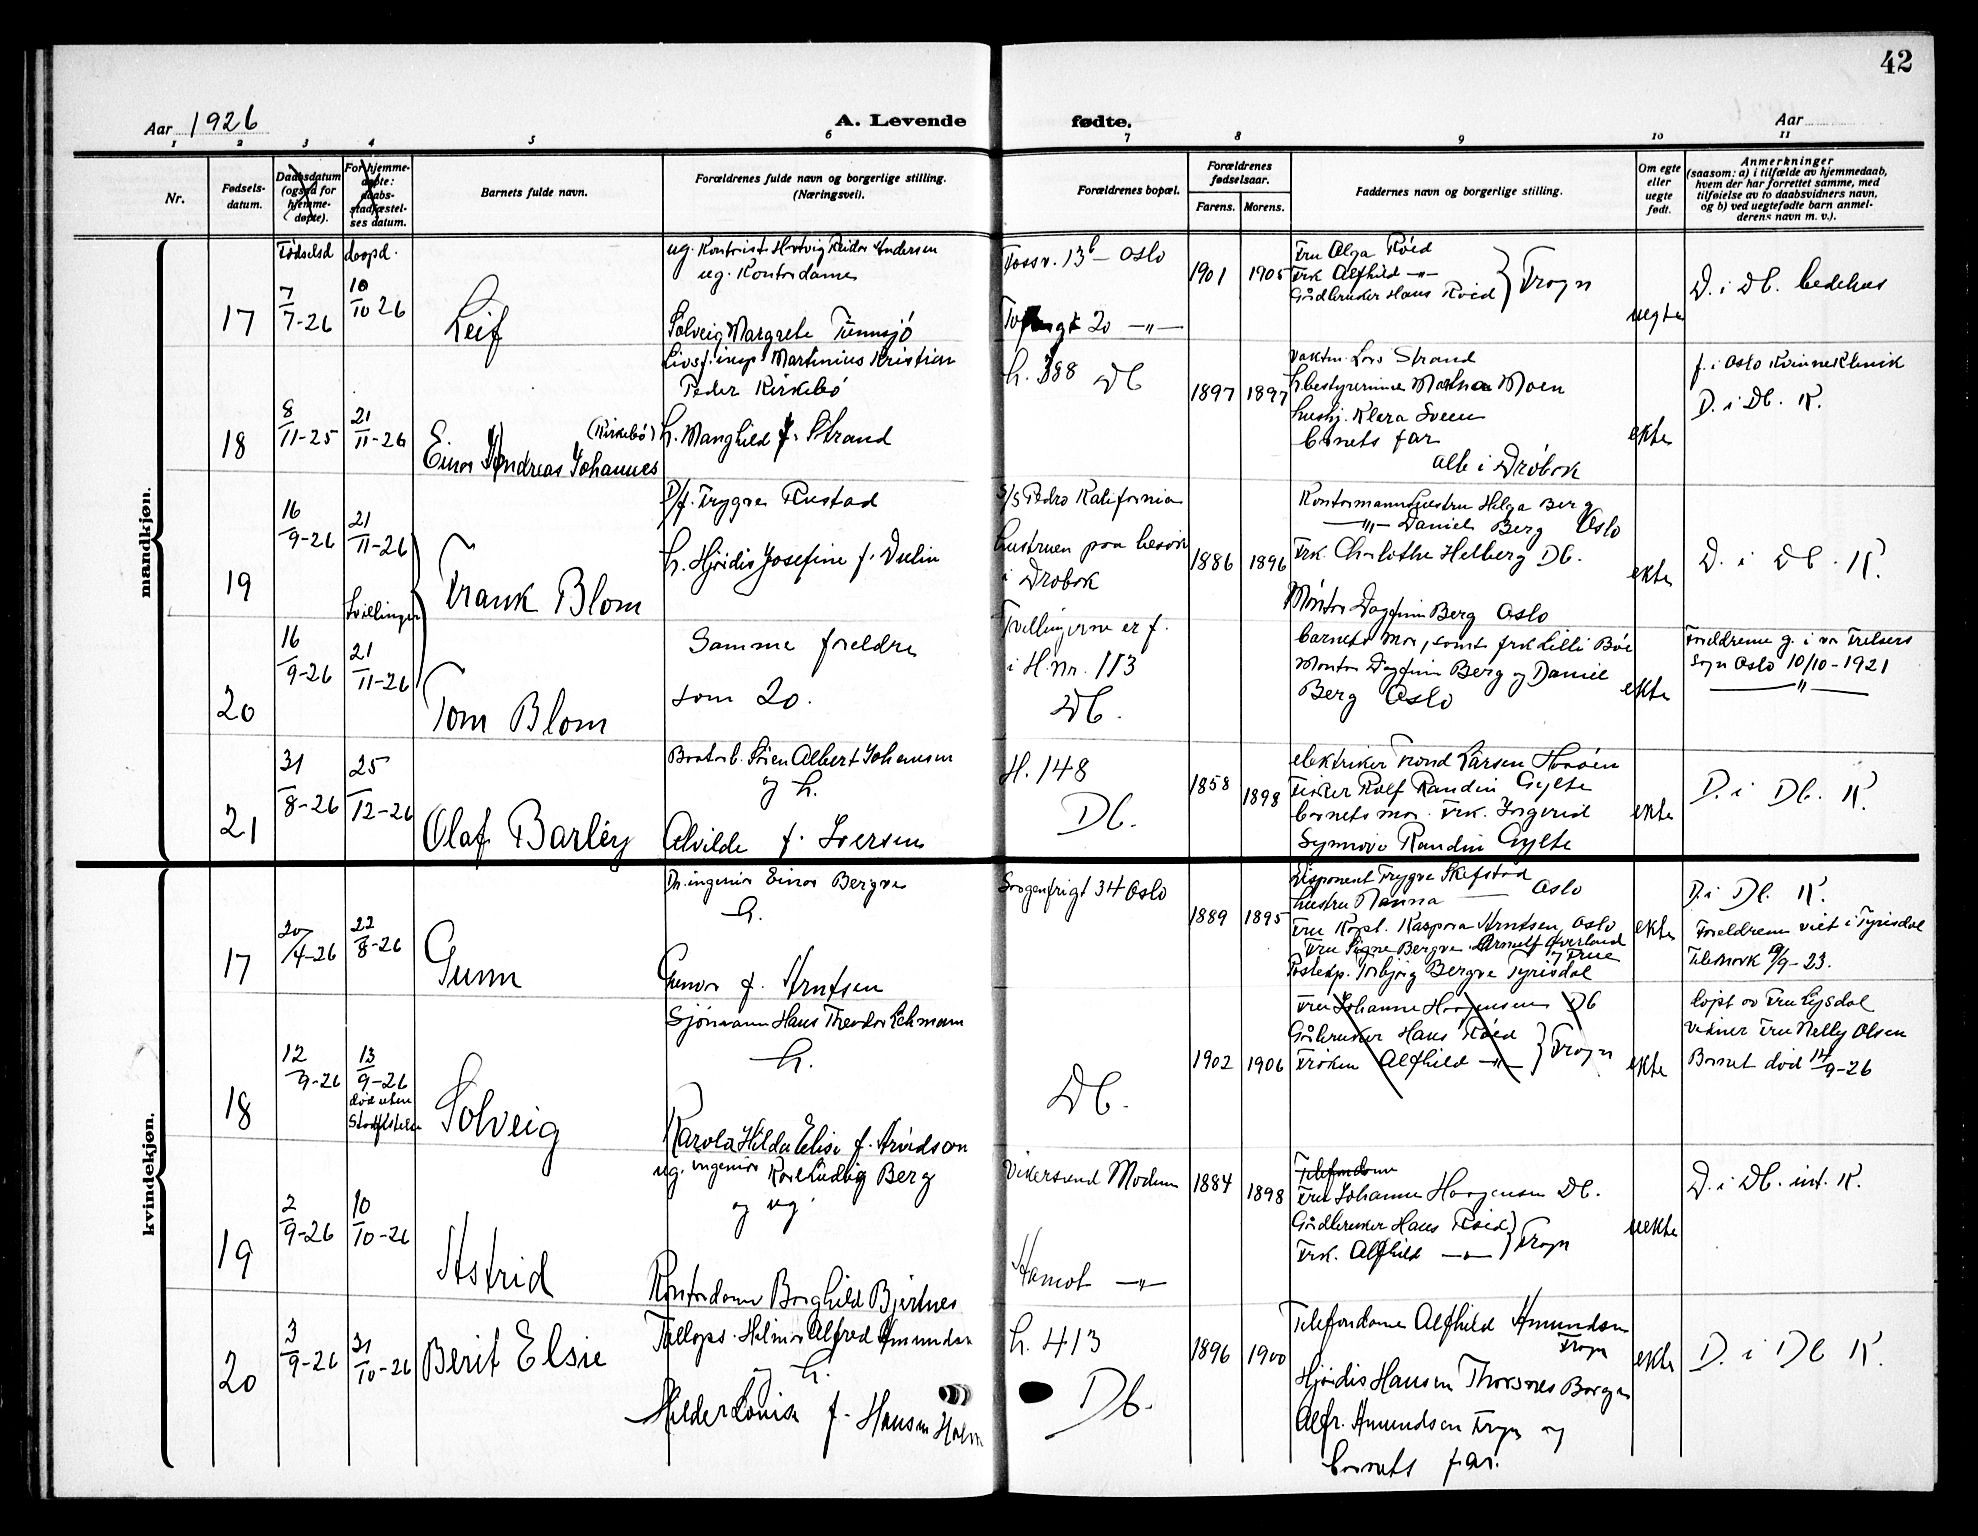 42
Aar 1926
A. Levende fødte.
Aar
1 2 3 4 5 6 7 8 9 10 11
Nr.
Fødsels-
datum.
Daabsdatum
(ogsaa for
hjemme-
døpte).
For hjemme-
døpte:
daabs-
stadfæstel-
ses datum.
Barnets fulde navn.
Forældrenes fulde navn og borgerlige stilling.
(Næringsvei).
Forældrenes bopæl.
Forældrenes
fødselsaar.
Farens. Morens.
Faddernes navn og borgerlige stilling.
Om egte
eller
uegte
født.
Anmerkninger
(saasom: a) i tilfælde av hjemmedaab,
hvem der har forrettet samme, med
tilføielse av to daabsvidners navn,
og b) ved uegtefødte barn anmel-
derens navn m. v.).
mandkjøn.
Fødselsd døpd.
17
7/7-26
10/10 26
Leif
ug. Kontorist Hartvig Reidar Andersen
ug. Kontordame
Solveig Margrete
Fossv. 13b - Oslo
20 -"-
1901 1905
Fru Alga Röed
Frk Alfhild -"-
Gårdbruker Hans Röed } Frogn
uegte
D. i Db. bedehus
18
8/11-25
21/11-26
(Kirkebö)
Einar Andreas Johannes
Livsf. insp. Martinius Kristian
Peder Kirkebö
h. Manghild f. Strand
h. 388 Db
1897 1897
vaktm. Lars Strand
hbestyrerinne Martha Moen
hushj. Klara Sveen
barnets far
alle i Dröbak
ekte
f. i Oslo Kvinneklinik
D. i Db. K.
19
16/9-26
21/11-26
tvillinger
Frank Blom
D/f. Trygve Rustad
h. Hjördis Josefine f. Dulin
S/S Pedro Kalifornia
hustruen paa besök
i Dröbak
1886 1896
Kontormannshustru Helga Berg
-"- Daniel Berg Oslo
Frk. Charlothe Helberg Db.
Montör Dagfinn Berg Oslo
ekte
D. i Db. K.
20
16/9-26
21/11-26
Tom Blom
Samme foreldre
som 20.
Tvillingerne er f.
i H. Nr. 113
Db.
barnets mor, samt frk Lilli Böe
Montör Dagfinn Berg og Daniel
Berg Oslo
ekte
Foreldrene g. i vor Frelsers
Sogn Oslo 10/10-1921
-"-
21
31/8-26
25/12-26
Olaf Barléy
Sören Albert Johansen
og h.
Alvilde f. Iversen
H. 148
Db.
1858 1898
elektriker Trond Larsen
Fisker Rolf Randin Gylte
barnets mor. Frk. Ingerid
Synnöve Randin Gylte
ekte
D. i Db. K.
kvindekjøn.
17
20/4-26
22/8-26
Gunn
Dr. ingeniör Einar Bergve
h.
Gunvor f. Arntsen
Sorgenfrigt 34 Oslo
1889 1895
Disponent Trygve Skefstad
hustru Nanna — Oslo
Fru Kapt. Kaspara Arntsen, Oslo
Fru Signe Bergve Arnulf Överland
og Frue
Postexp. Torbjörg Bergve Tyrisdal
ekte
D. i Db. K.
Foreldrene viet i Tyrisdal
Telemark /9-23.
18
12/9-26
13/9-26
död uten
Stadfestelse
Solveig
Sjömann Hans Theodor Eckmann
h.
Karola Hilda Elise f. Arvidson
Db.
1902 1906
Fru Johanne Db
Gårdbruker Hans Röed
Fröken Alfhild -"- } Frogn
ekte
döpt av Fru Lysdal
vidner Fru Nelly Olsen
Barnet död 14/9-26
19
2/9-26
10/10-26
Astrid
ug. ingeniör Karl Ludvig Berg
og ug.
Kontordame Borghild Bjertnes
Vikersund Modum
Hamot -"-
1884 1898
Telefondame
Fru Johanne Db.
Gårdbruker Hans Röed
Frk. Alfhild -"- } Frogn
uekte
D. i Db. int. K.
20
3/9-26
31/10-26
Berit Elsie
Tollops. Hilmar Alfred Amundsen
og h.
Hilda Lovise f. Hansen Holm
h. 413
Db.
1896 1900
Telefondame Alfhild Amundsen
Frogn
Hjördis Hansen Thorsnes Borgen
Alfr. Amundsen Frogn og
barnets far.
ekte
D. i Db K.